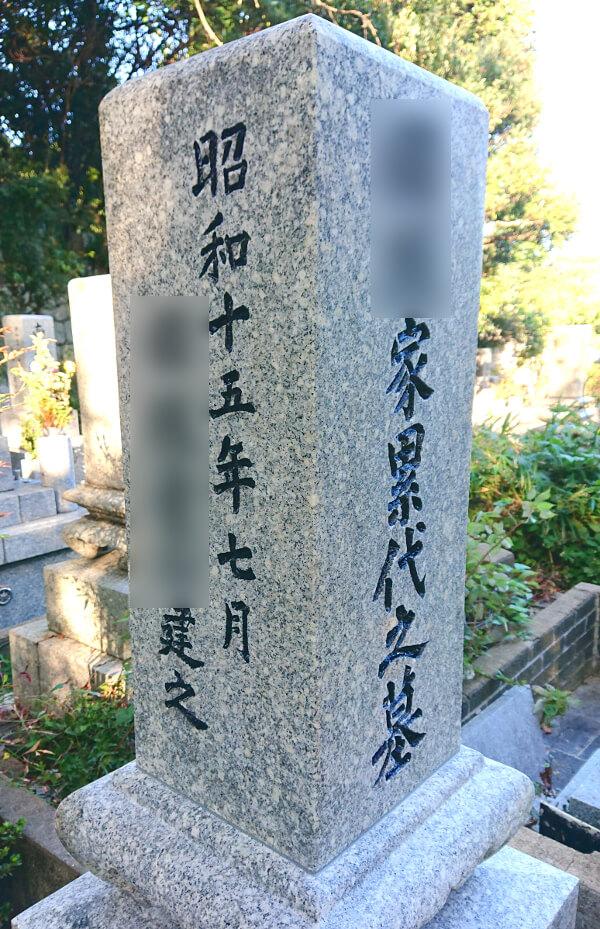 家累代之墓
昭和十五年七月
建之